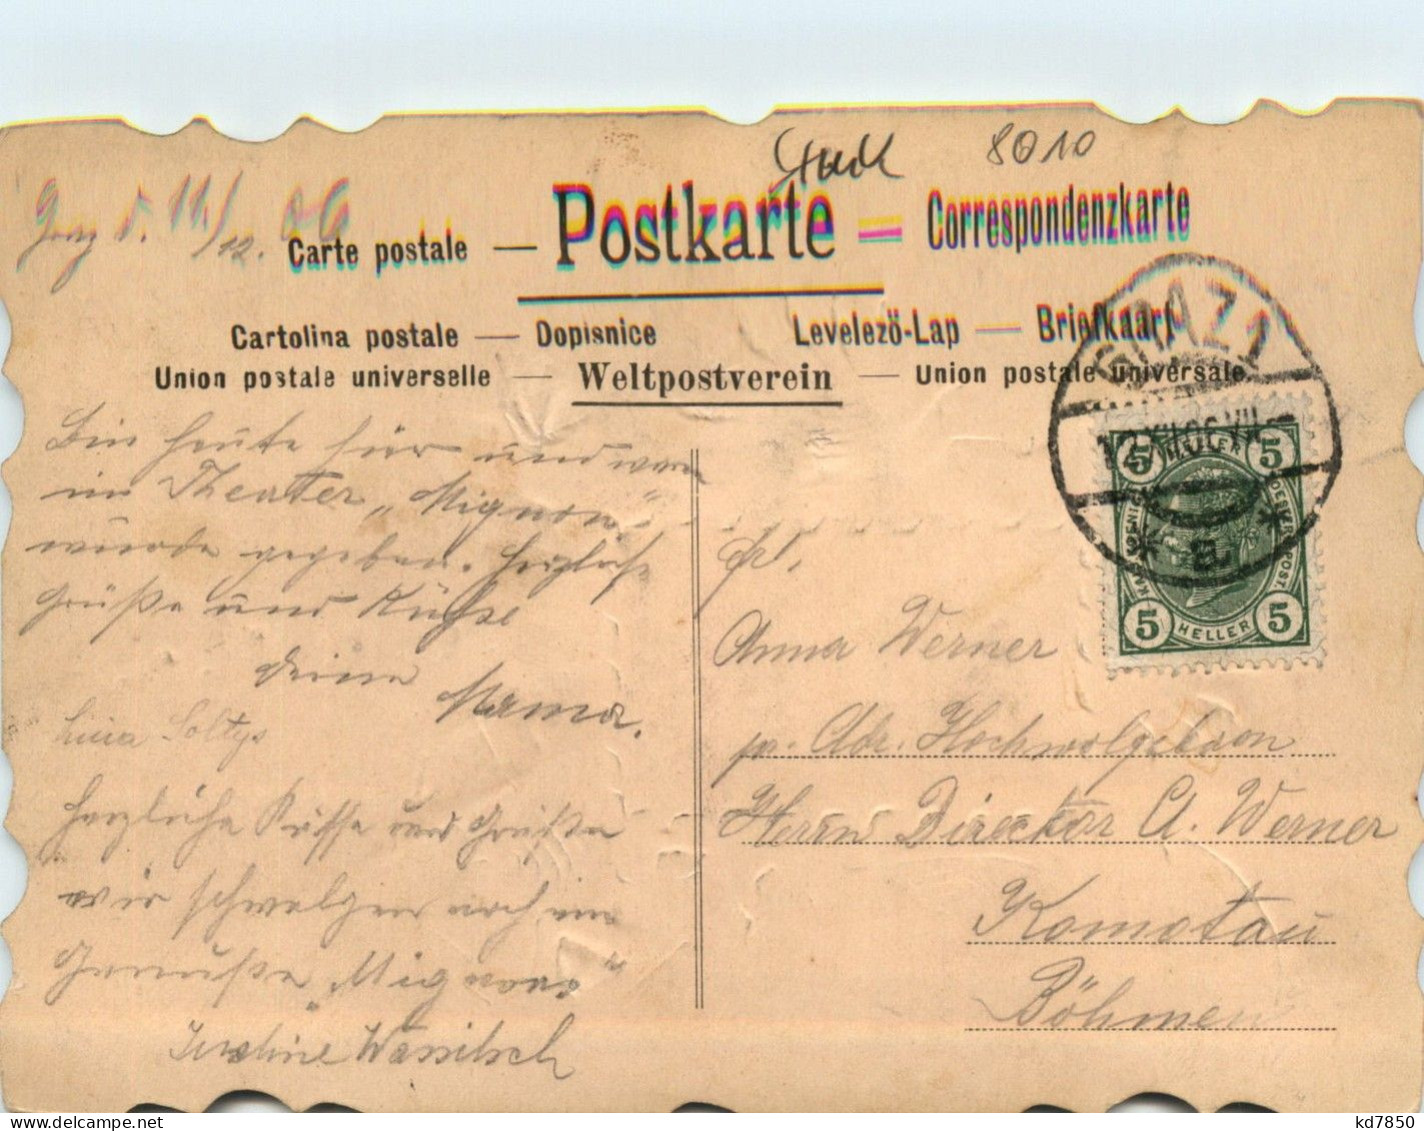 8010
Graz d. 11./12. 06
Carte postale — Postkarte — Correspondenzkarte
Cartolina postale — Dopisnice Levelezö-Lap — Briefkaart
Union postale universelle — Weltpostverein — Union postale universale
GRAZ 1
5 HELLER 5
5 HELLER 5
Bin heute hier und war
im Theater, „Mignon"
wurde gegeben. Herzlichste
Grüße und Küsse
Deine Mama.
Soltys
Herzliche Küsse und Grüße
wir schwelgen noch im
Genuße „Mignon"
Frl.
Anna Werner
pr. Adr. Hochwolgeboren
Herrn Director A. Werner
Komotau
Böhmen
delcampe.net
kd7850